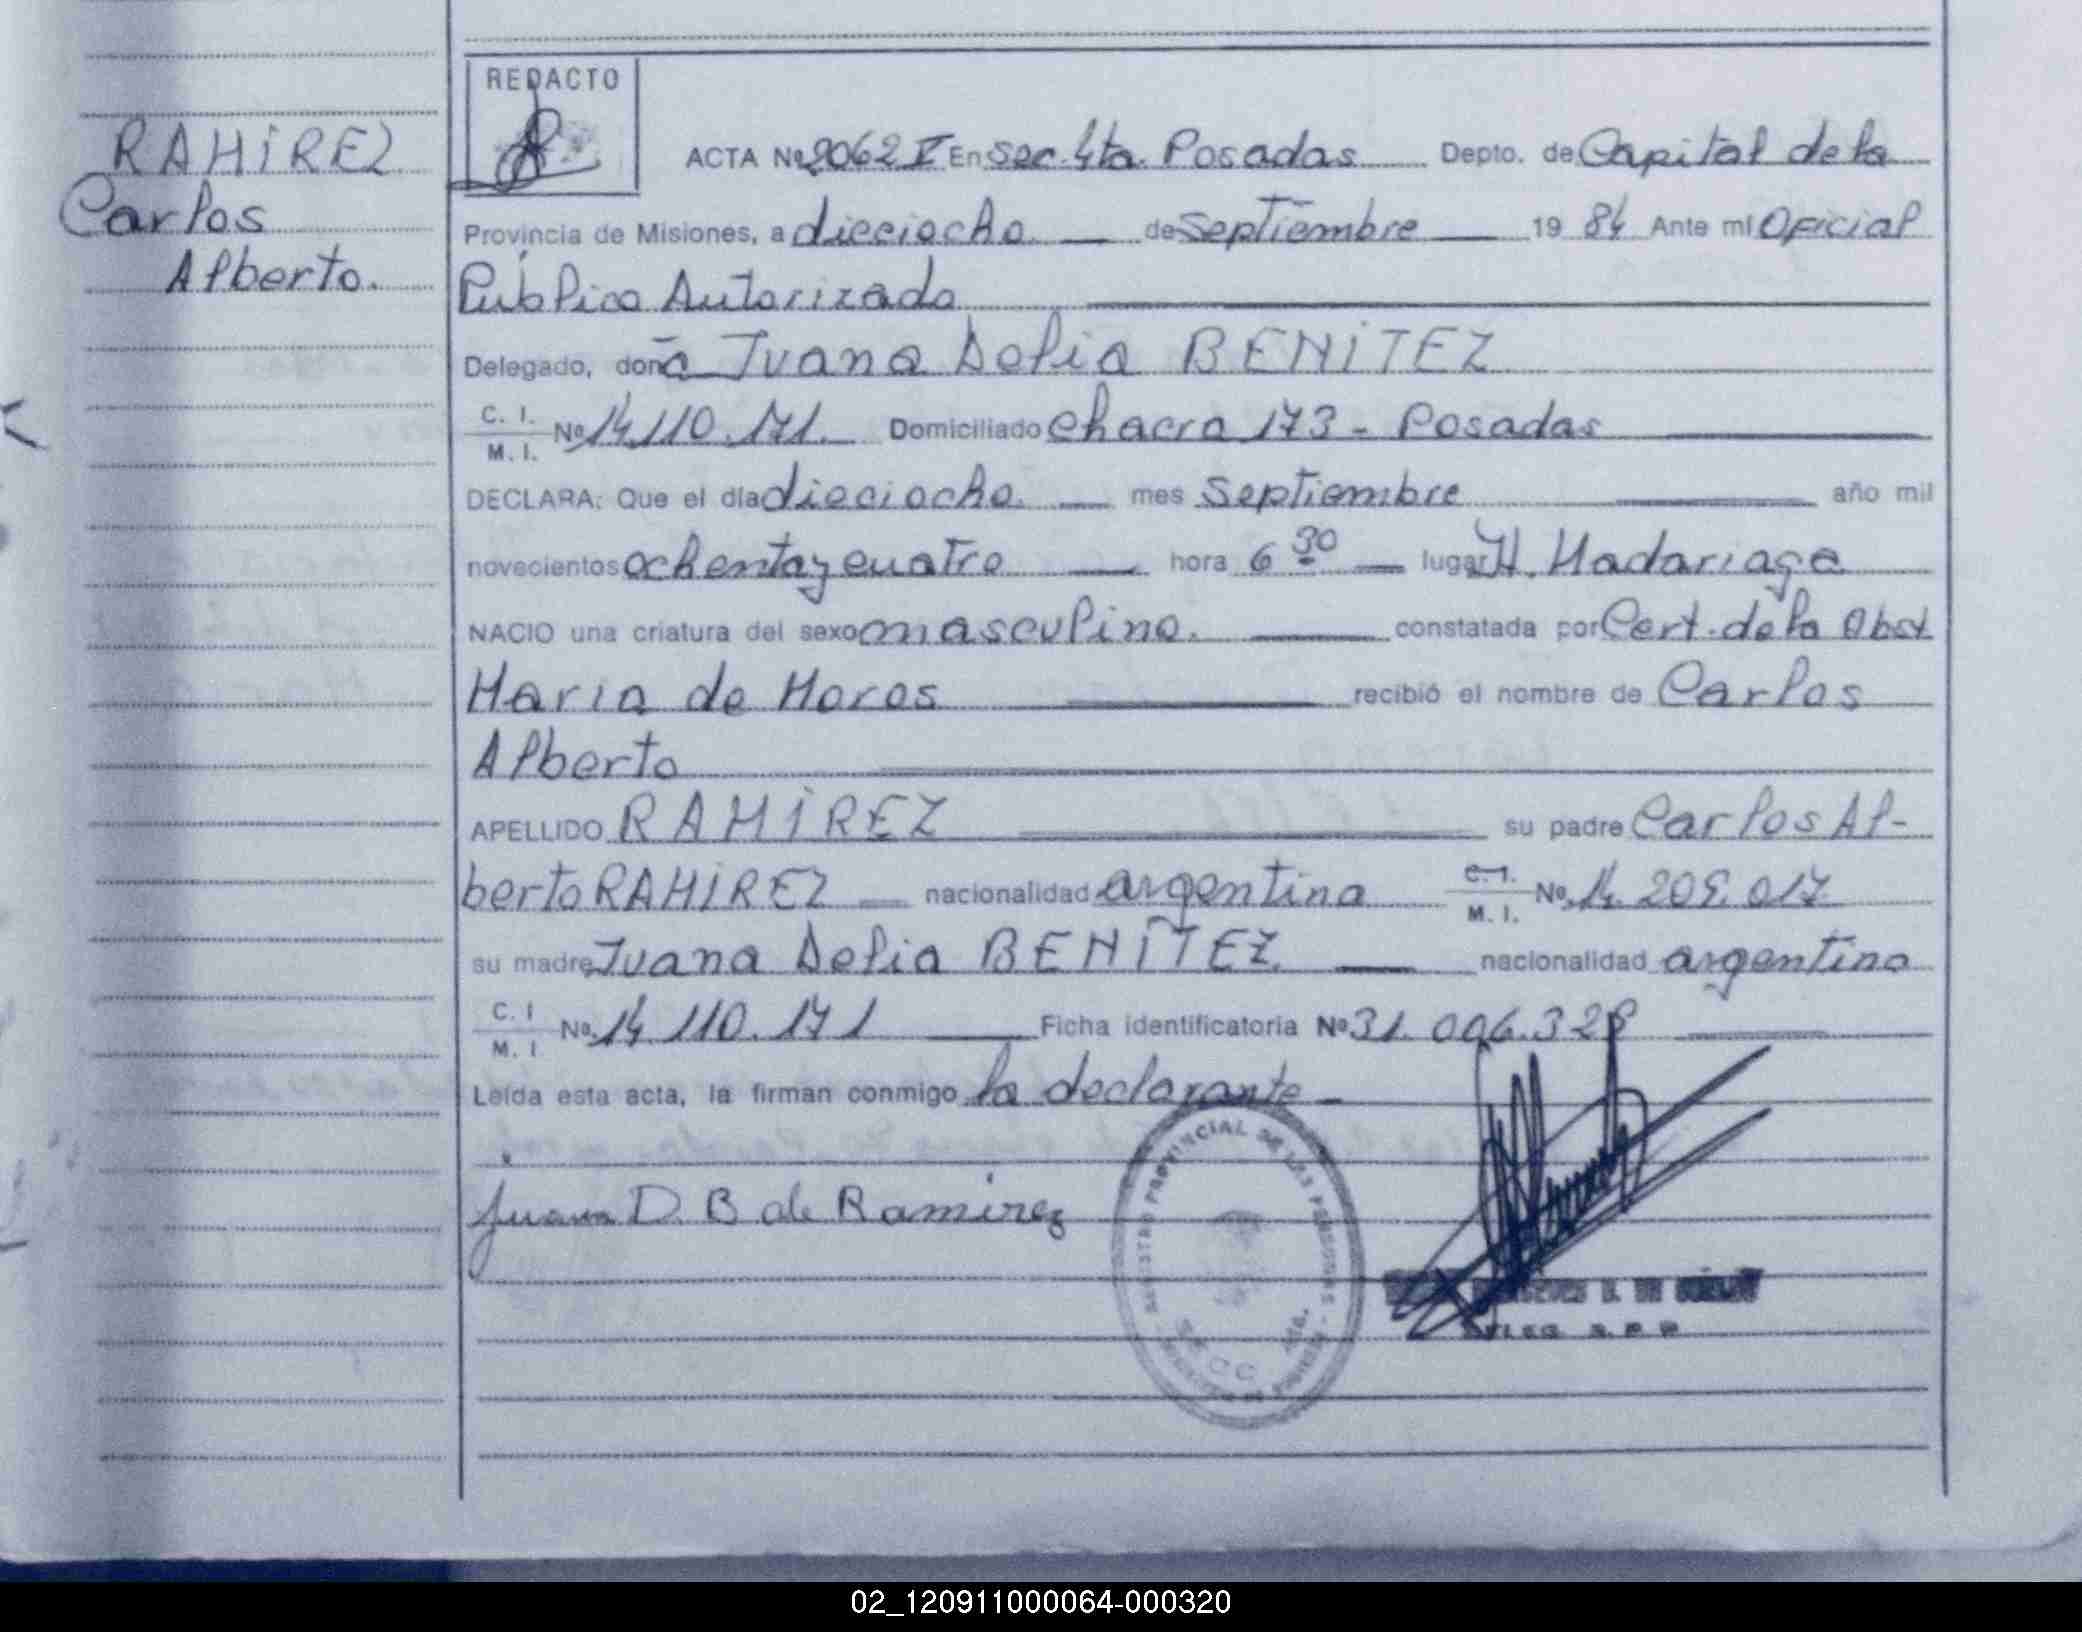 RAMIREZ
Carlos
Alberto.
REDACTO
ACTA Nº 2062 I En Sec. 4ta. Posadas Depto. de Capital de la
Provincia de Misiones, a dieciocho de Septiembre 19 84 Ante mí Oficial
Público Autorizado
Delegado, doña Juana Delia BENITEZ
C. I.
M. I. Nº 14.110.171. Domiciliado Chacra 173 - Posadas
DECLARA: Que el día dieciocho. mes Septiembre año mil
novecientos ochenta y cuatro hora 6 30 lugar H. Madariaga
NACIO una criatura del sexo masculino. constatada por Cert. de la Obst
Maria de recibió el nombre de Carlos
Alberto
APELLIDO RAMIREZ su padre Carlos Al-
berto RAMIREZ nacionalidad argentina C. I.
M. I. Nº 14. 017
su madre Juana Delia BENITEZ nacionalidad argentina
C. I
M. I Nº 14.110.171 Ficha identificatoria Nº 31.006.328
Leída esta acta, la firman conmigo la declarante
Juana D. B de Ramirez
REGISTRO PROVINCIAL DE LAS PERSONAS
4ta.
02_120911000064-000320